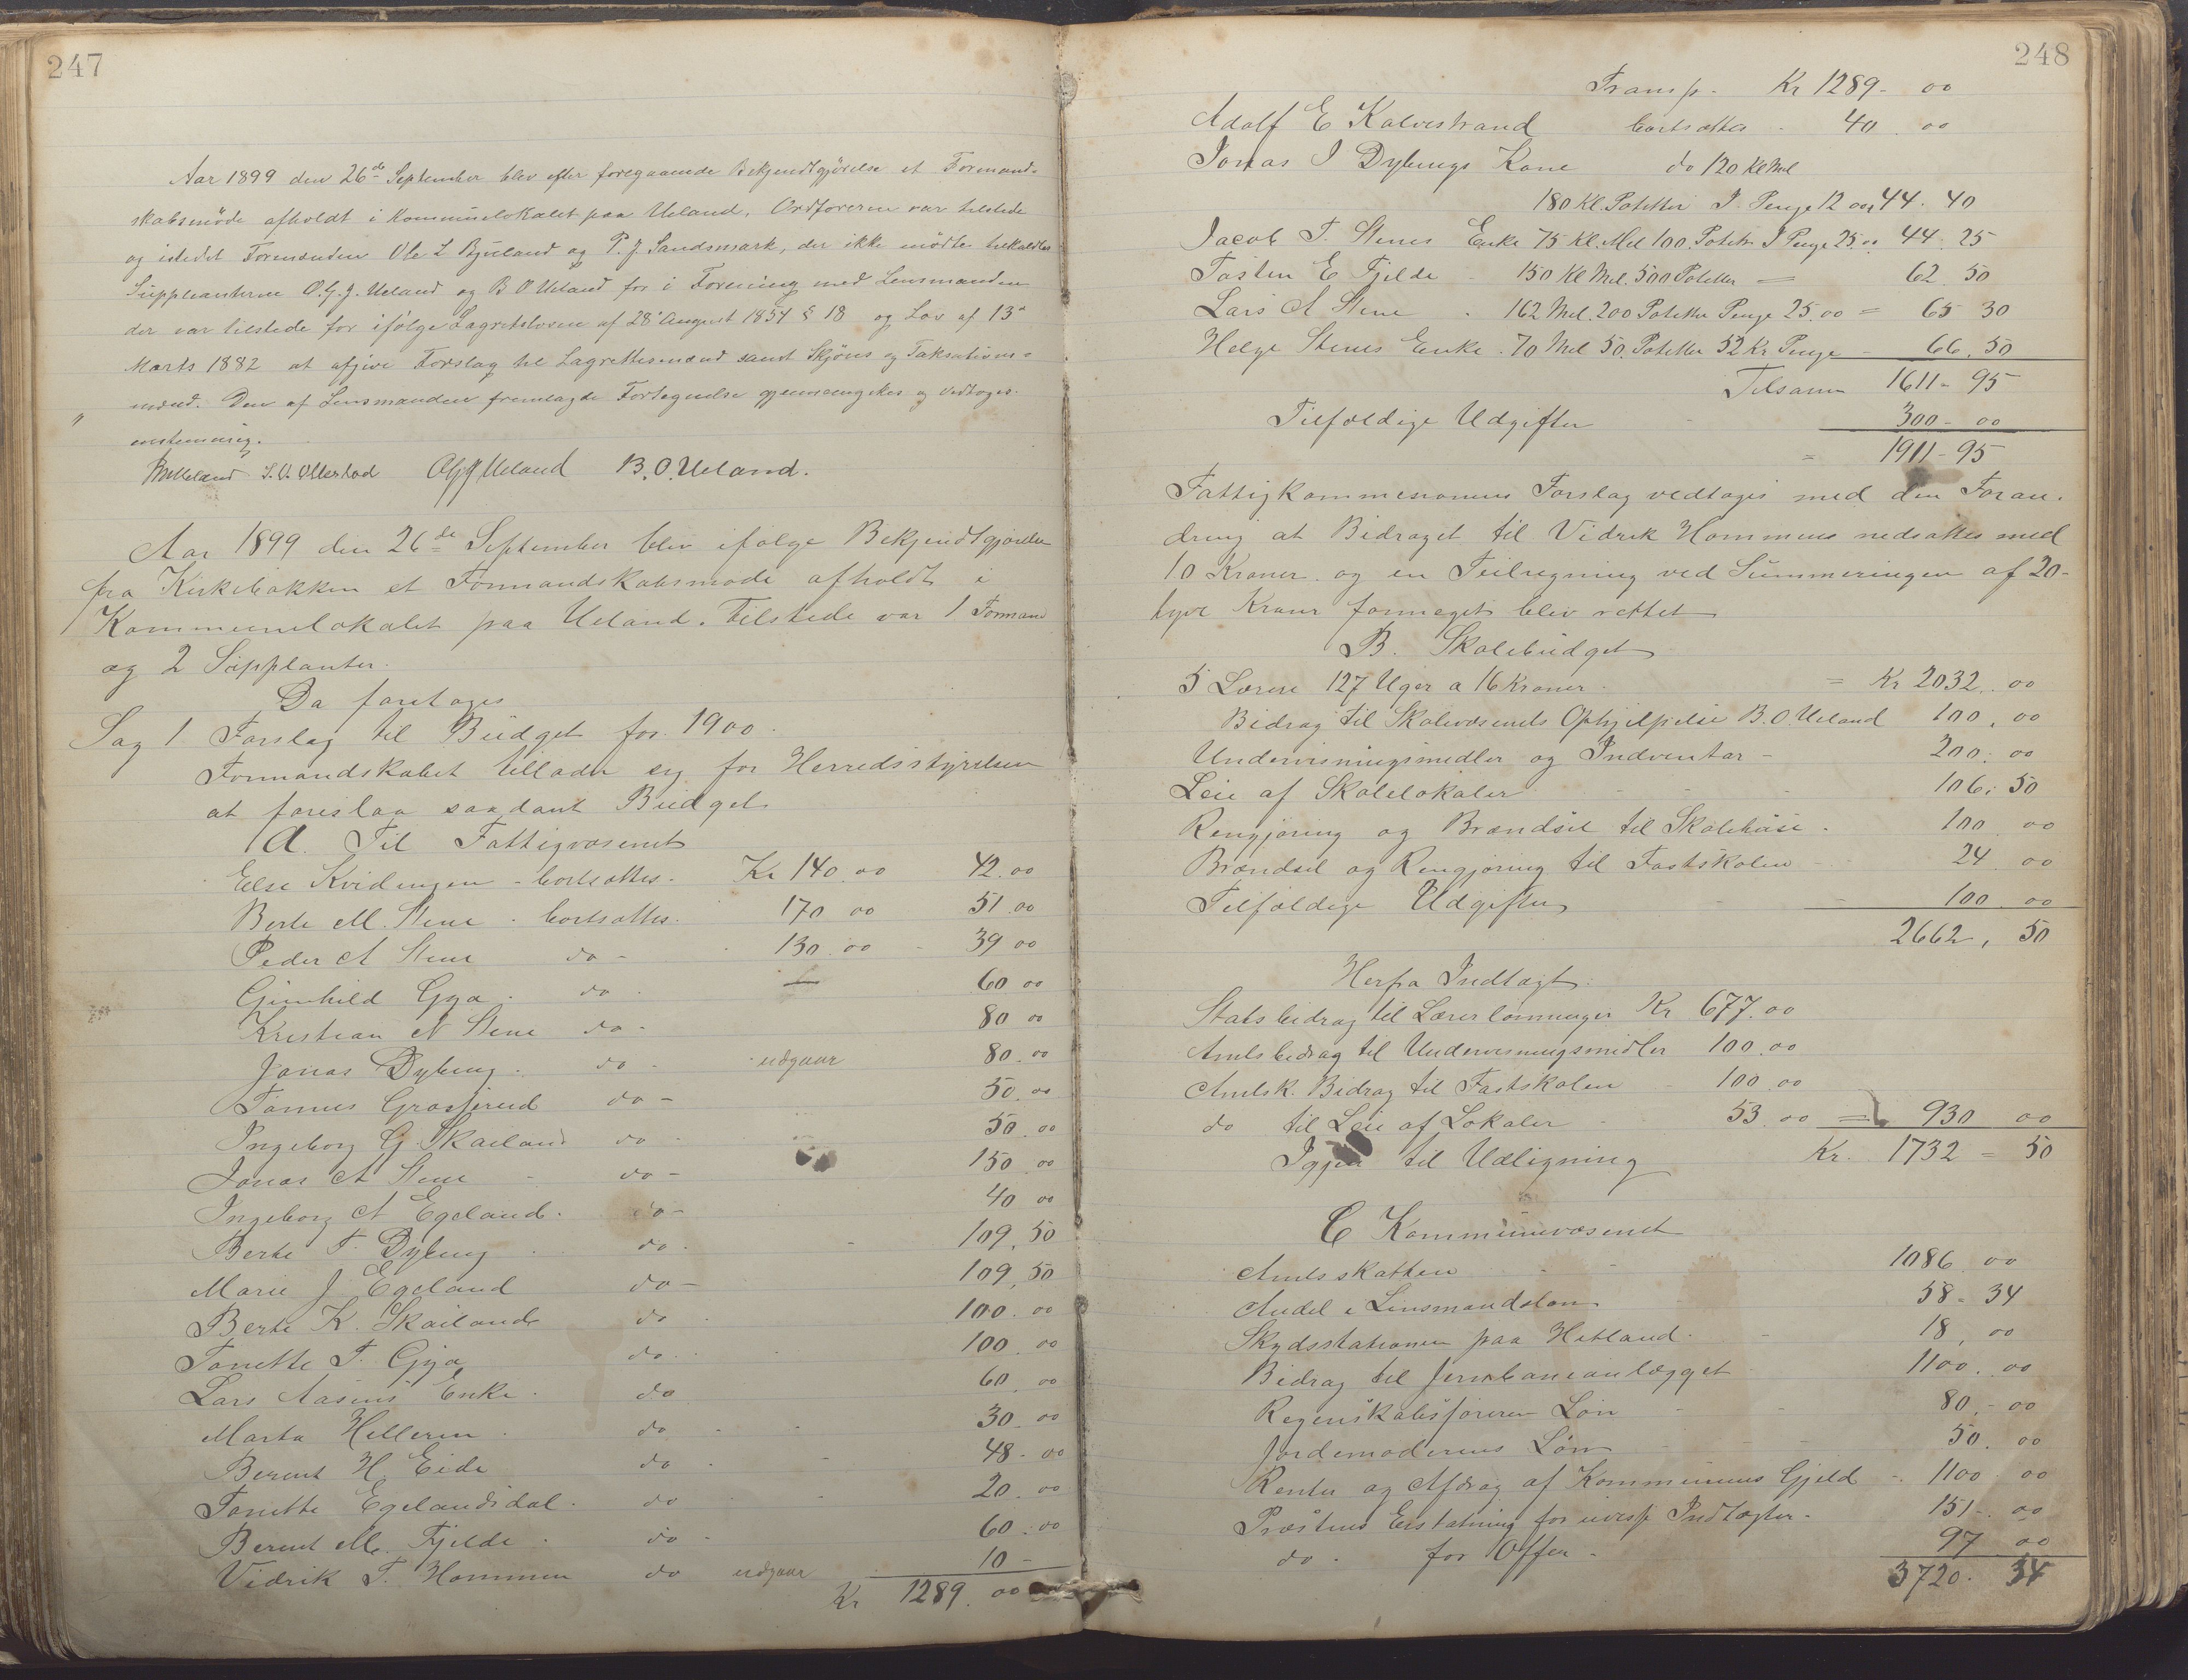 247
Aar 1899 den 26de September blev efter foregaaende Bekjendtgjörelse et Formand-
skabsmöde afholdt i Kommunelokalet paa Ueland. Ordföreren var tilstede
og istedet Formænden Ole L Bjuland og P. J. Sandsmark, der ikke mödte tilkaldtes
Suppleanterne O.G.J. Ueland og B O Ueland for i Forening med Lensmanden
der var tilstede for ifölge Lagretteloven af 28de August 1854 § 18 og Lov af 13de
Marts 1882 at afgive Forslag til Lagrettesmænd samt Skjöns og Taksations-
mænd. Den af Lensmanden fremlagde Fortegnelse gjennemgikes og vedtoges
enstemmig.
S. O. Ollestad OGJ Ueland B. O. Ueland.
Aar 1899 den 26de September blev ifølge Bekjendtgjørelse
fra Kirkebakken et Formandskabsmøde afholdt i
Kommunelokalet paa Ueland. Tilstede var 1 Formand
og 2 Supplanter.
Da foretoges
Sag 1 Forslag til Budget for 1900.
Formandskabet tillader sig for Herredsstyrelsen
at foreslaa saadant Budget
A. Til Fattigvæsenet
Else Kvidingen - bortsættes. Kr 140.00 42.00
Berte M. Stene . bortsættes. 170 00 51.00
Peder A Stene do - 130.00 - 39 00
Gunhild Gya . do . — 60 00
Kristian N Stene do - 80 00
Jonas Dybing . do . udgaar 80.00
Tønnes Grøsfjeld do - 50.00
Ingeborg G. Skailand do . 50.00
Jonas A Stene - do - 150.00
Ingeborg A Egeland. do - 40 00
Berte T. Dybing . do . 109,50
Marie J Egeland do - 109,50
Berte K. Skailand do . 100.00
Tonette T. Gya do . 100.00
Lars Aasens Enke . do 60.00
Marta Helleren . do . 30.00
Berent H. Eide do . 48-00
Tonette Egelandsdal . do 20.00
Berent M. Fjelde . do . 60.00
Vidrik T. Hommen do udgaar 10 -
Kr 1289.00
248
Transp. Kr 1289- 00
Adolf E Kalvestrand bortsættes . 40.00
Jonas J Dybings Kone do 120 Kl Mel
180 Kl. Potetter I Penge 12 00, 44.40
Jacob T. Stenes Enke 75 Kl. Mel 100. Potett. I Penge 25.00 44.25
Tosten E Fjelde - 150 Kl Mel. 500 Potetter = 62.50
Lars A Stene . 162 Mel. 200 Potetter Penge 25.00 = 65 30
Helge Stenes Enke . 70 Mel 50. Potetter 52 Kr Penge - 66.50
Tilsam 1611-95
Tilfældige Udgifter 300-00
= 1911-95
Fattigkommesionens Forslag vedtoges med den Foran-
dring at Bidraget til Vidrik Hommens nedsættes med
10 Kroner og en Feilregning ved Summeringen af 20-
tyve Kroner formeget blev rettet
B. Skolebudget
5 Lærere 127 Uger a 16 Kroner. = Kr 2032.00
Bidrag til Skolevæsenets Ophjelpelse B. O. Ueland 100.00
Undervisningsmidler og Indventar - 200.00
Leie af Skolelokaler 106.50
Rengjøring og Brændsel til Skolehuse . 100 00
Brændsel og Rengjøring til Fastskolen - 24 00
Tilfældige Udgifter - 100 00
2662,50
Herfra Indtægt:
Statsbidrag til Lærerlønninger Kr 677.00
Amtsbidrag til Undervisningsmidler 100.00
Amtsk. Bidrag til Fastskolen - 100.00
do til Leie af Lokaler 53.00 = 930 00
Igjen til Udligning Kr. 1732 = 50
C Kommunevæsenet
Amtsskatten 1086.00
Andel i Lensmandsløn 58-34
Skydsstationen paa Hetland . 18,00
Bidrag til Jernbaneanlægget 1100.00
Regenskabsføreren Løn 80.-00
Jordemoderens Løn 50.00
Renter og Afdrag af Kommunens Gjeld - 1100.00
Præstens Erstatning for uvisse Indtægter - 151-.00
do . for Offer - 97 00
3720.34